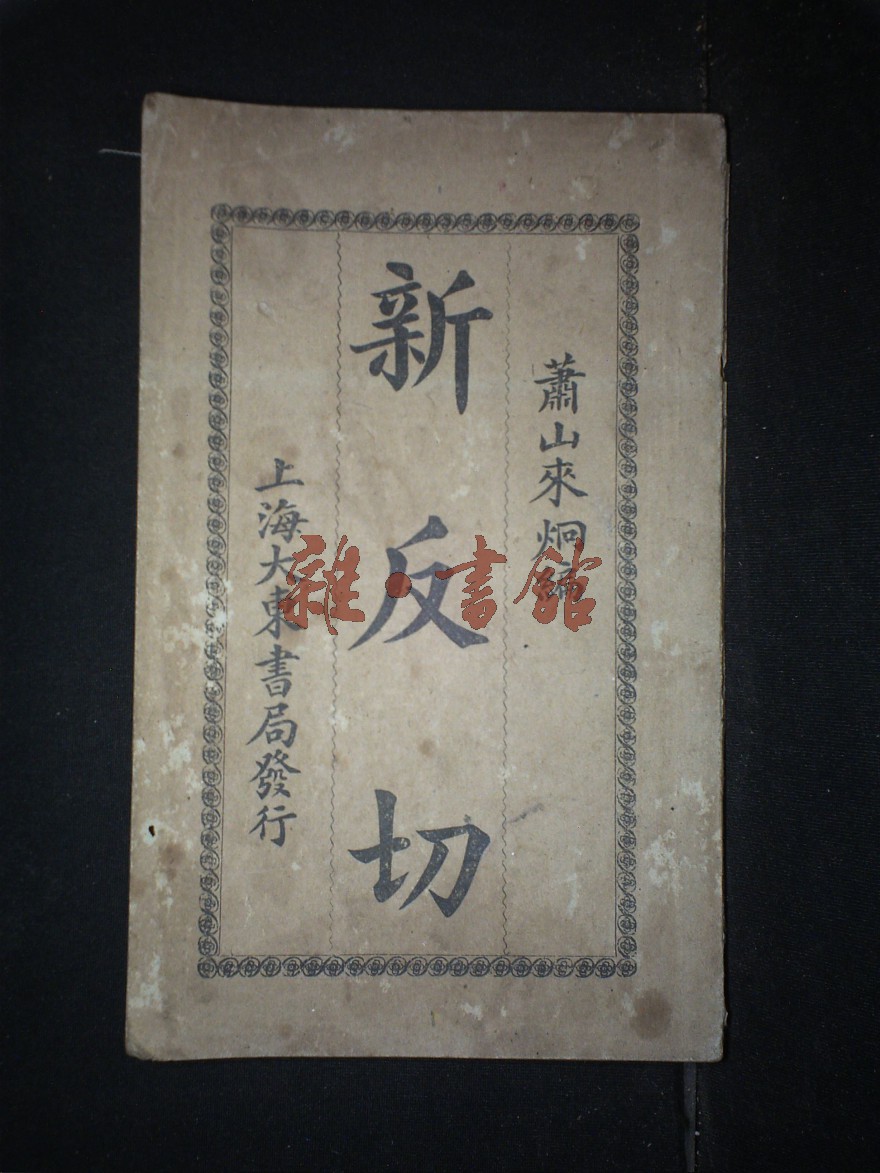 蕭山來炯編
新反切
上海大東書局發行
雜·書館